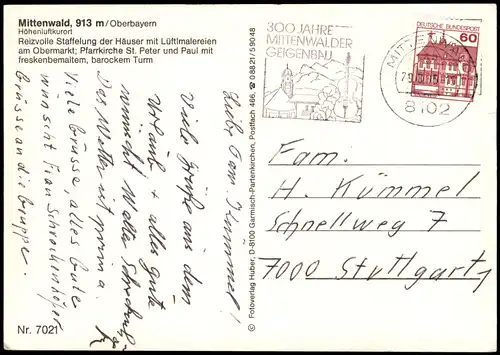 Mittenwald, 913 m/Oberbayern
Höhenluftkurort
Reizvolle Staffelung der Häuser mit Lüftlmalereien
am Obermarkt; Pfarrkirche St. Peter und Paul mit
freskenbemaltem, barockem Turm
300 JAHRE
MITTENWALDER
GEIGENBAU
DEUTSCHE BUNDESPOST
60
MITTENWALD
8102
Liebe Fam. Kümmel!
Viele Grüße aus dem
Urlaub + alles Gute
wünscht Walter
Das Wetter ist prima.
Viele Grüsse, alles Gute
wünscht Frau
Grüsse an die Gruppe.
Fam.
H. Kümmel
Schnellweg 7
7000 Stuttgart
© Fotoverlag Huber, D-8100 Garmisch-Partenkirchen, Postfach 466, ☎ 08821/59048
Nr. 7021